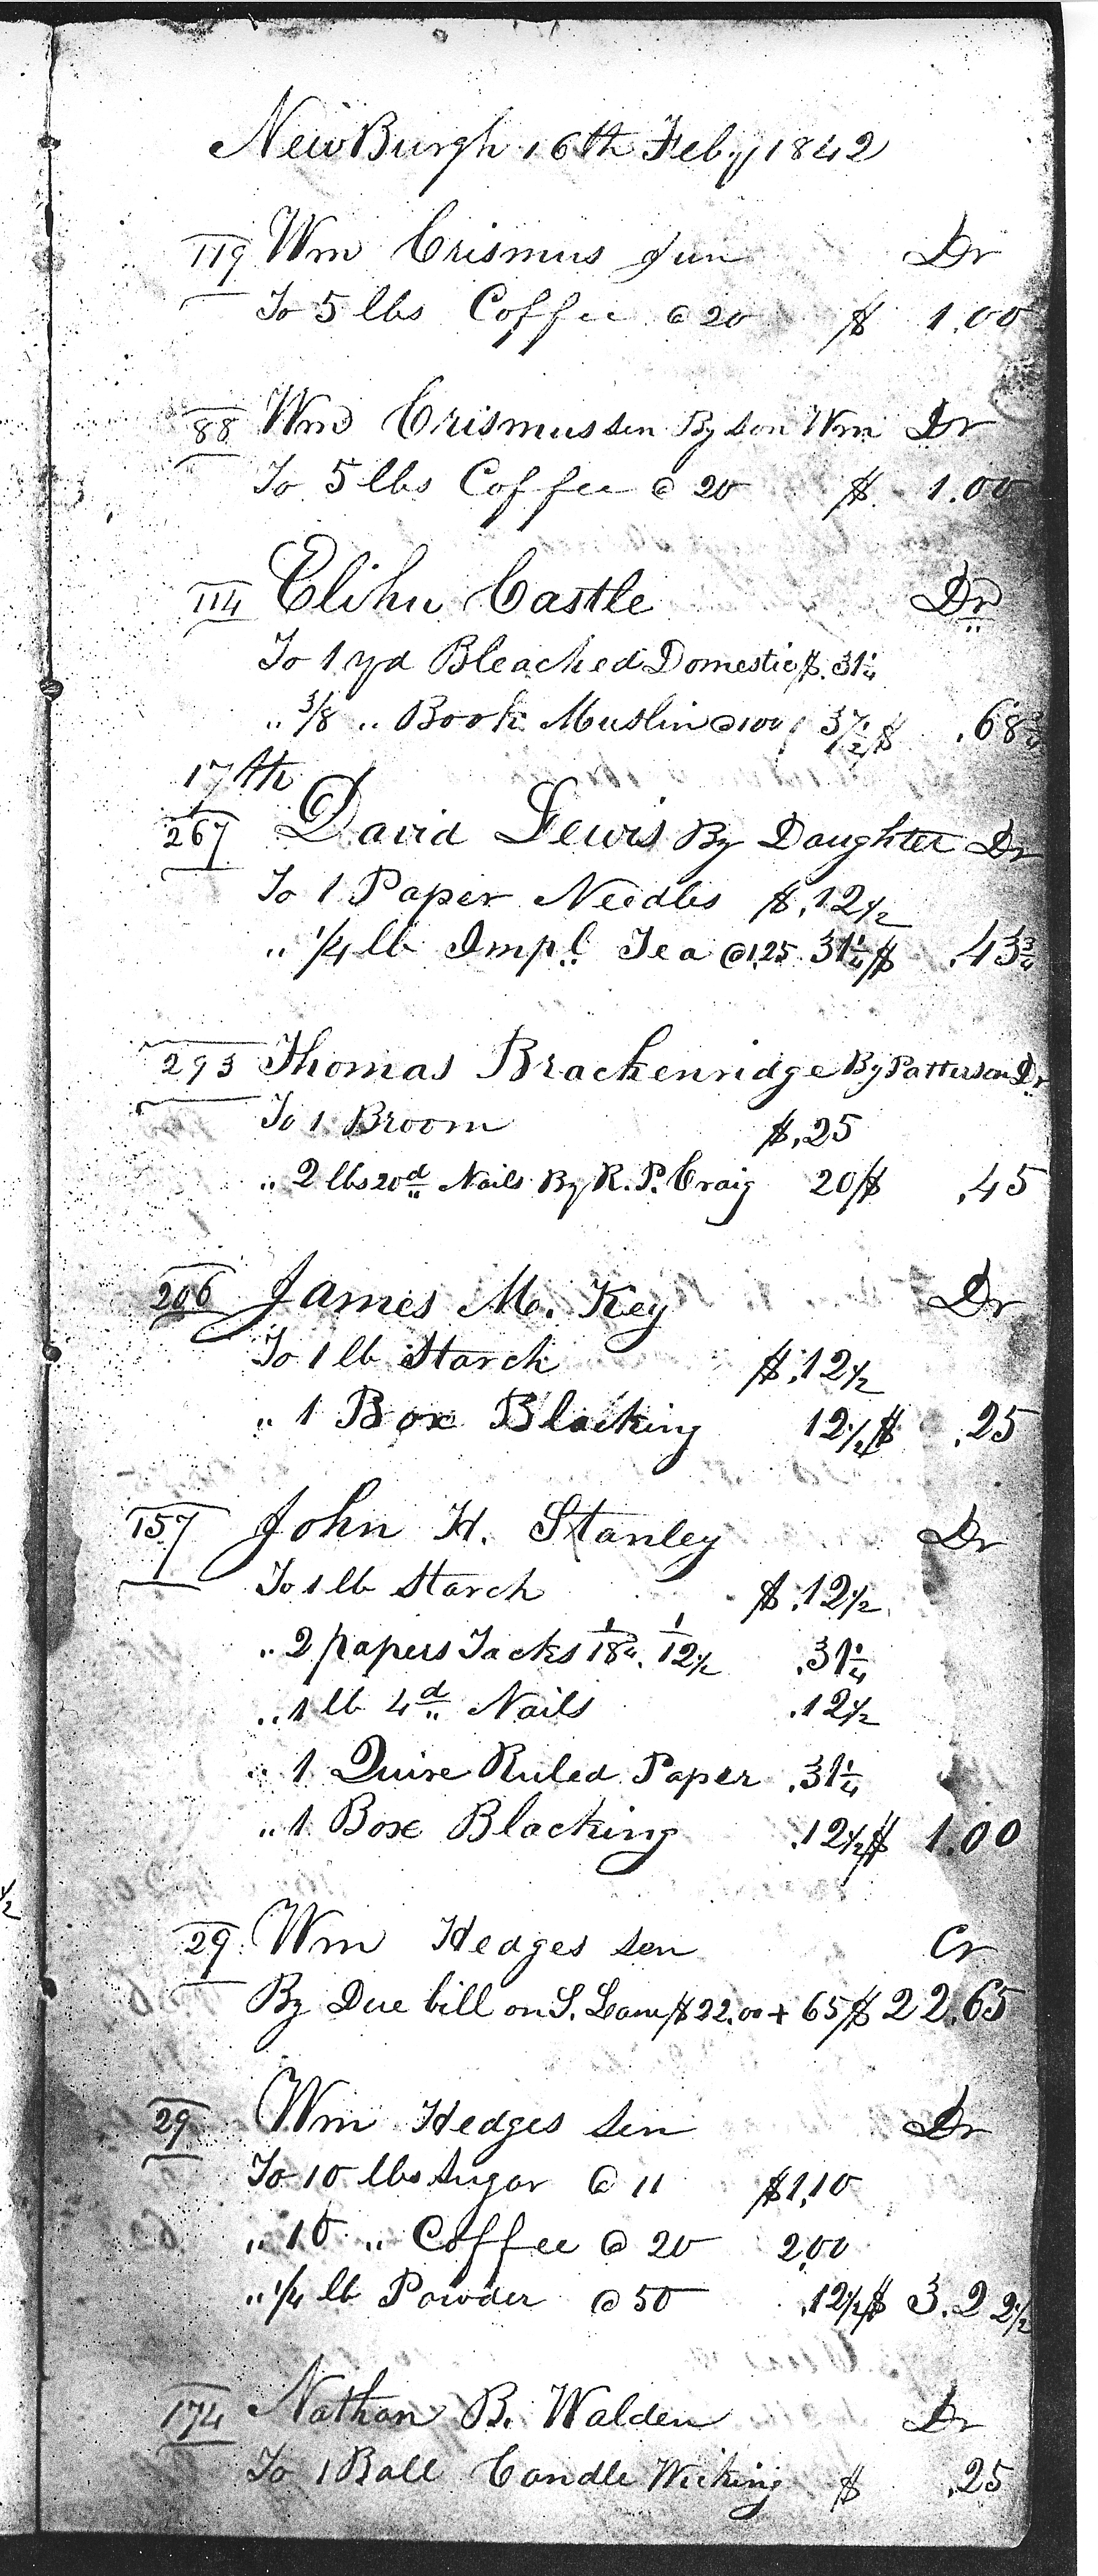 NewBurgh 16th Feby 1842
119 Wm Crismus Jun Dr
To 5 lbs Coffee @ 20 $ 1.00
88 Wm Crismus sen By son Wm Dr
To 5 lbs Coffee @ 20 $ 1.00
114 Elihu Castle Dr
To 1 yd Bleached Domestic $.31¼
" 3/8 " Book Muslin @ 100 37½ $ .68¾
17th
267 David Lewis By Daughter Dr
To 1 Paper Needles $.12½
" ¼ lb Impl. Tea @ 1.25 31¼ $ .43¾
293 Thomas Brackenridge By Patterson Dr
To 1 Broom $.25
" 2 lbs 20d Nails By R. P. Craig 20 $ .45
206 James M. Key Dr
To 1 lb Starch $.12½
" 1 Box Blacking 12½ $ .25
157 John H. Stanley Dr
To 1 lb Starch $.12½
" 2 papers Tacks 1/18¾ 1/12½ .31¼
" 1 lb 4d Nails .12½
" 1 Quire Ruled Paper .31¼
" 1 Box Blacking .12½ $ 1.00
½
29 Wm Hedges sen Cr
By Due bill on S. $22.00 + 65 $ 22.65
29 Wm Hedges sen Dr
To 10 lbs Sugar @ 11 $1.10
" 10 " Coffee @ 20 2.00
" ¼ lb Powder @ 50 .12½ $ 3.22½
174 Nathan B. Walden Dr
To 1 Ball Candle Wicking $ .25